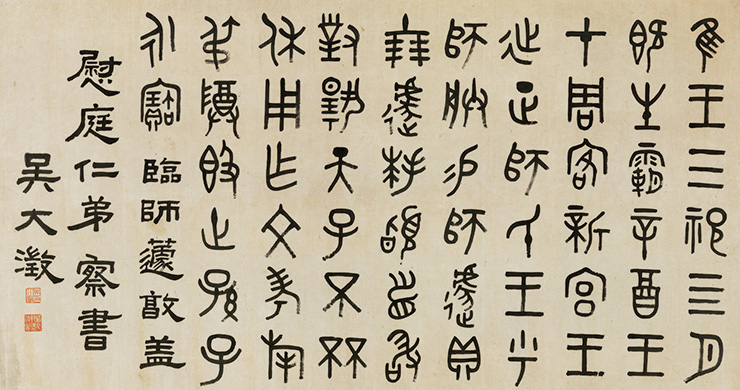 隹王三祀四月
既生霸辛酉王
才周客新宮王
延正師氏王乎
師朕易師遽貝
十朋遽拜䭫首敢
對揚天子不㔻
休用乍文考旄
弔尊𣪘世孫子
永寶 臨師遽敦蓋
慰庭仁弟察書
吳大澂